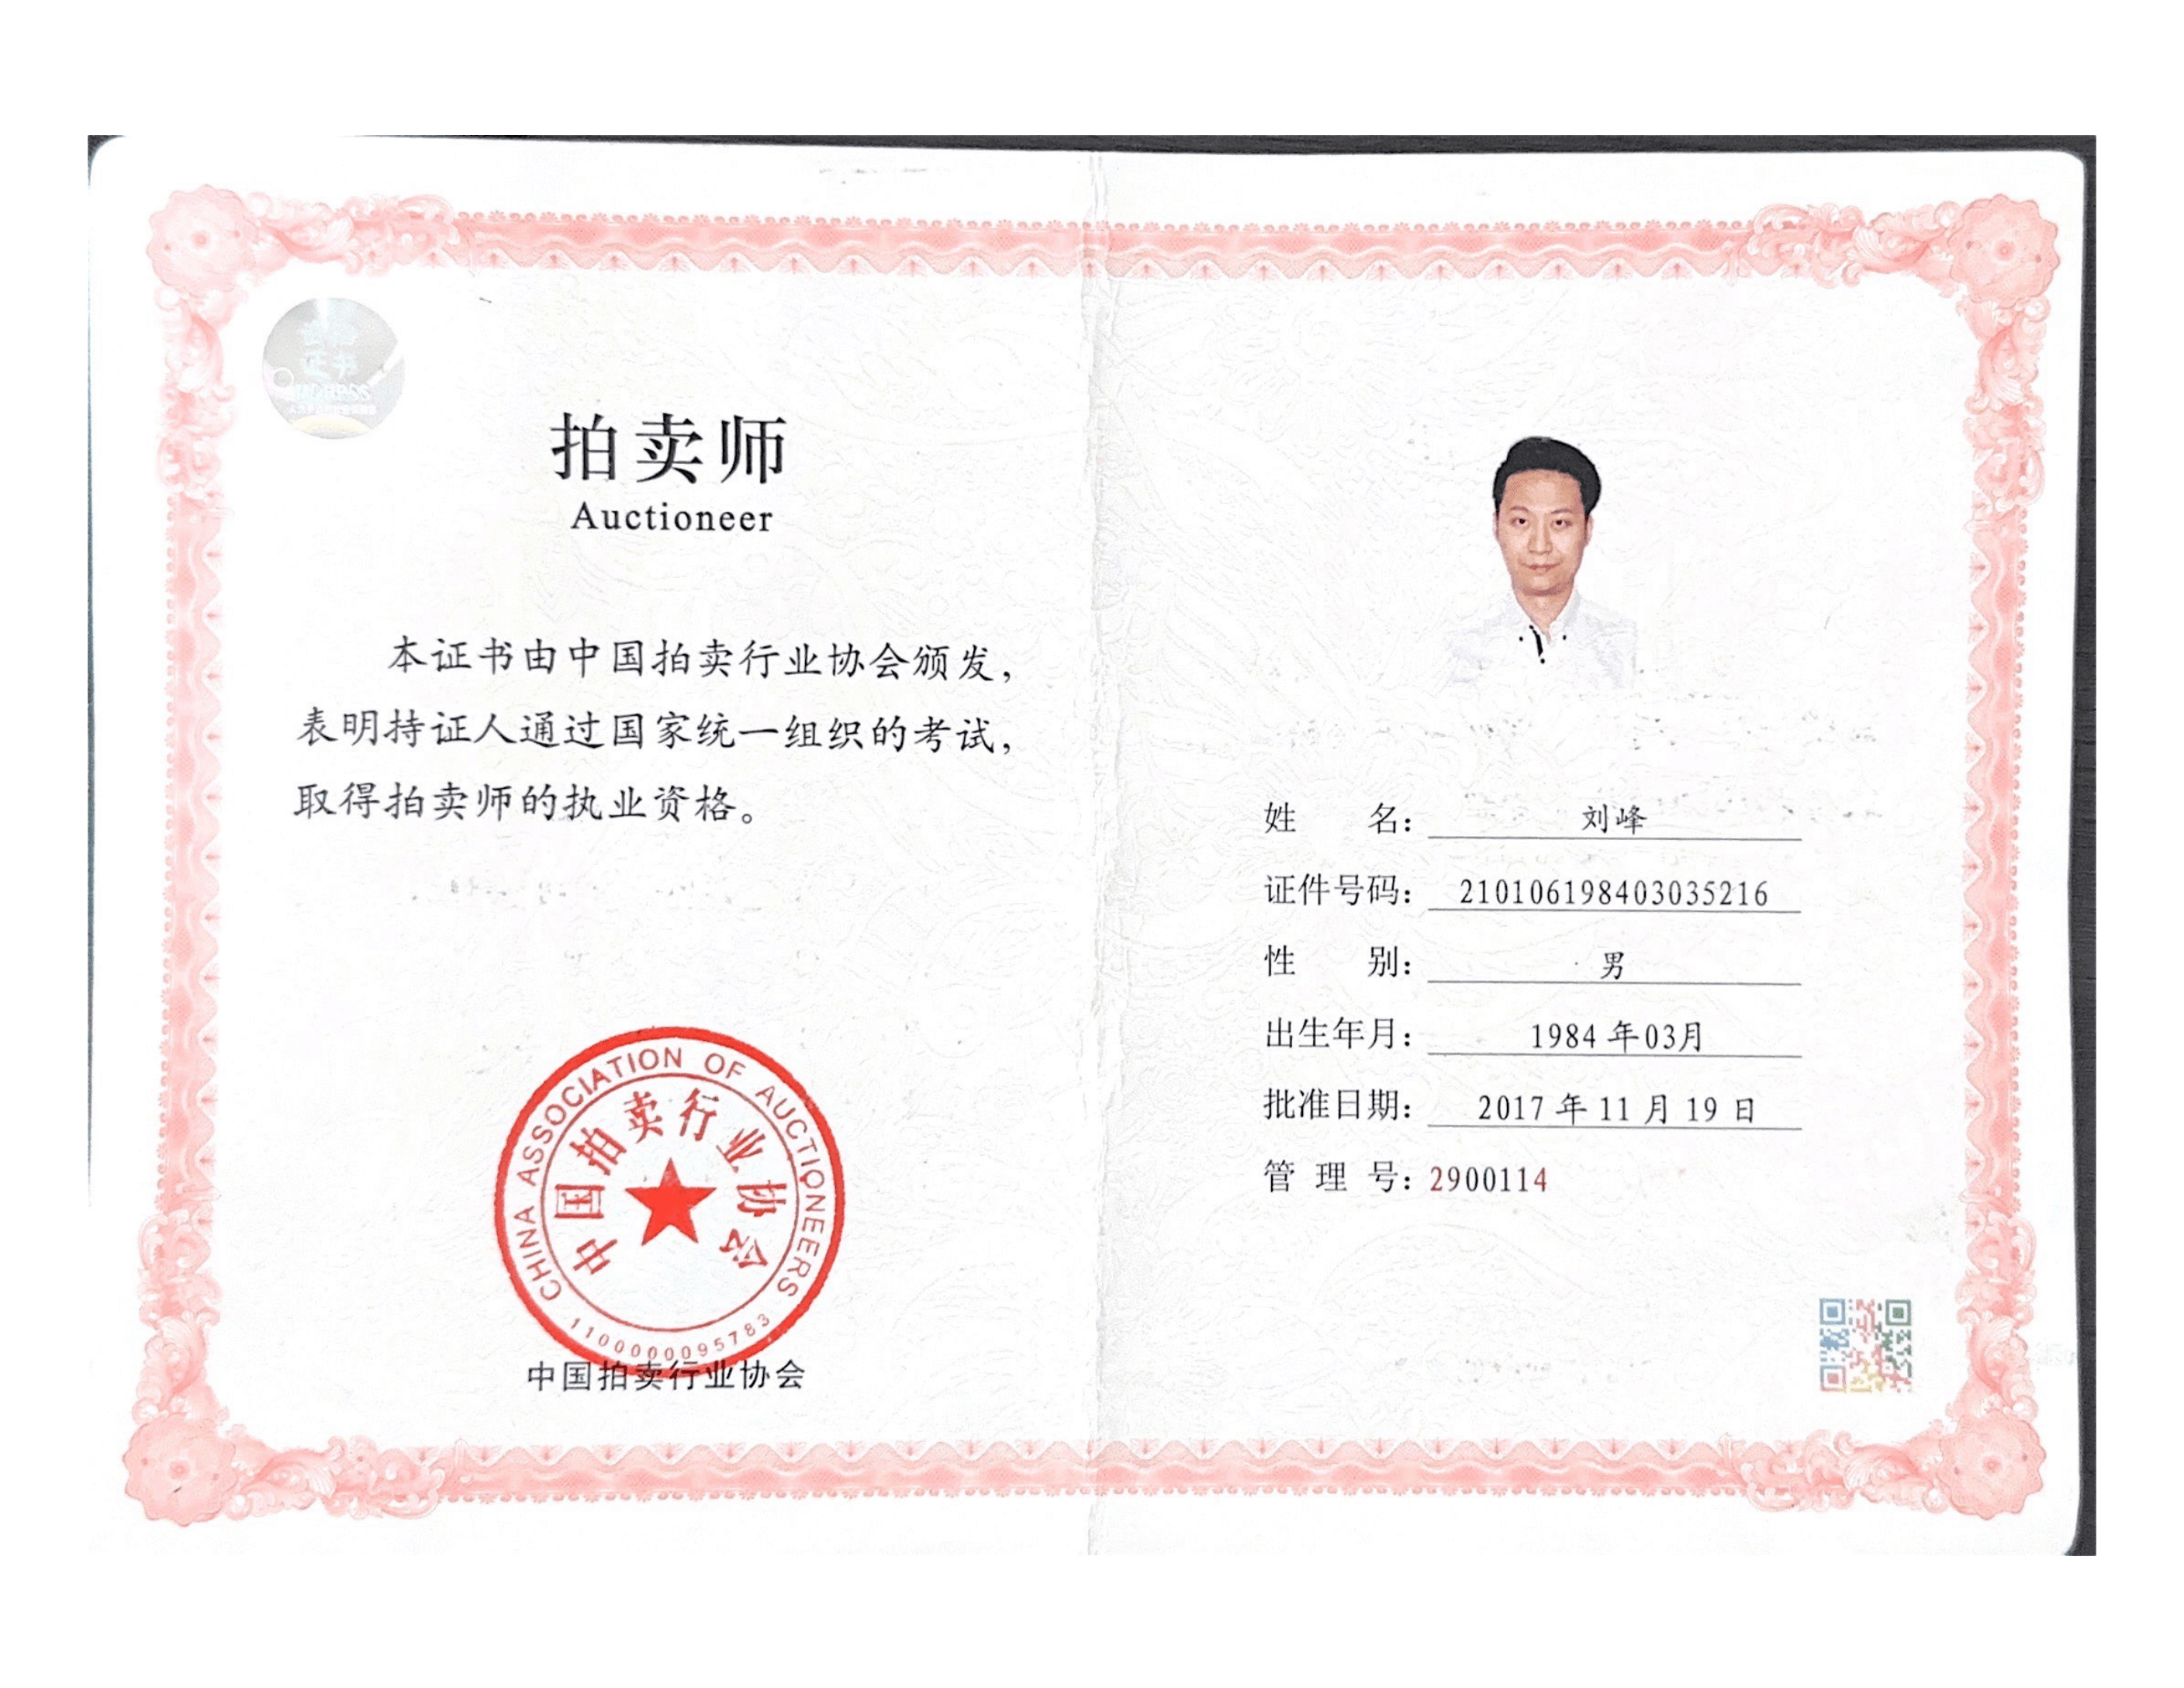 拍卖师
Auctioneer
本证书由中国拍卖行业协会颁发，
表明持证人通过国家统一组织的考试，
取得拍卖师的执业资格。
CHINA ASSOCIATION OF AUCTIONEERS
中国拍卖行业协会
1100000095783
中国拍卖行业协会
姓 名： 刘峰
证件号码： 210106198403035216
性 别： 男
出生年月： 1984 年03月
批准日期： 2017 年 11 月 19 日
管 理 号：2900114